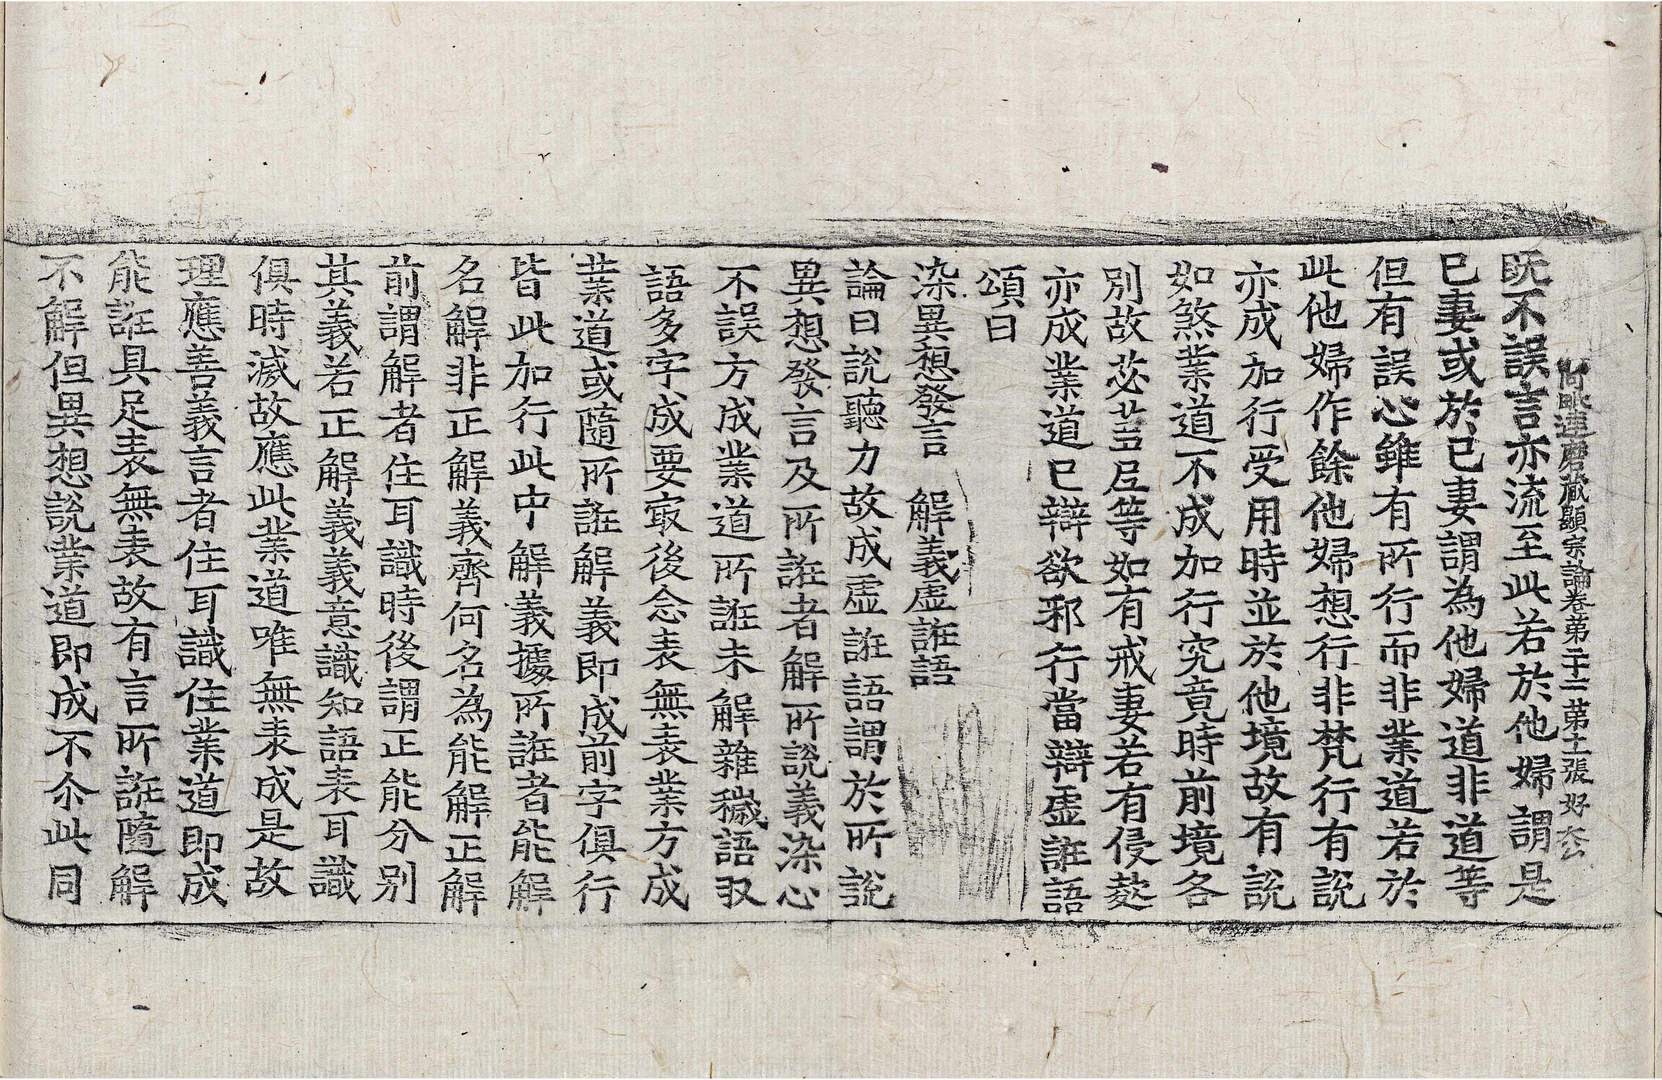 阿毗達磨藏顯宗論卷第二十二 第十二張 好
既不誤言亦流至此若於他婦謂是
已妻或於已妻謂為他婦道非道等
但有誤心雖有所行而非業道若於
此他婦作餘他婦想行非梵行有說
亦成加行受用時並於他境故有說
如煞業道不成加行究竟時前境各
別故苾芻尼等如有戒妻若有侵婬
亦成業道已辯欲邪行當辯虛誑語
頌曰
染異想發言　解義虛誑語
論曰說聽力故成虛誑語謂於所說
異想發言及所誑者解所說義染心
不誤方成業道所誑未解雜穢語収
語多字成要㝡後念表無表業方成
業道或隨所誑解義即成前字俱行
皆此加行此中解義據所誑者能解
名解非正解義齊何名為能解正解
前謂解者住耳識時後謂正能分別
其義若正解義義意識知語表耳識
俱時滅故應此業道唯無表成是故
理應善義言者住耳識住業道即成
能誑具足表無表故有言所誑隨解
不解但異想說業道即成不尒此同